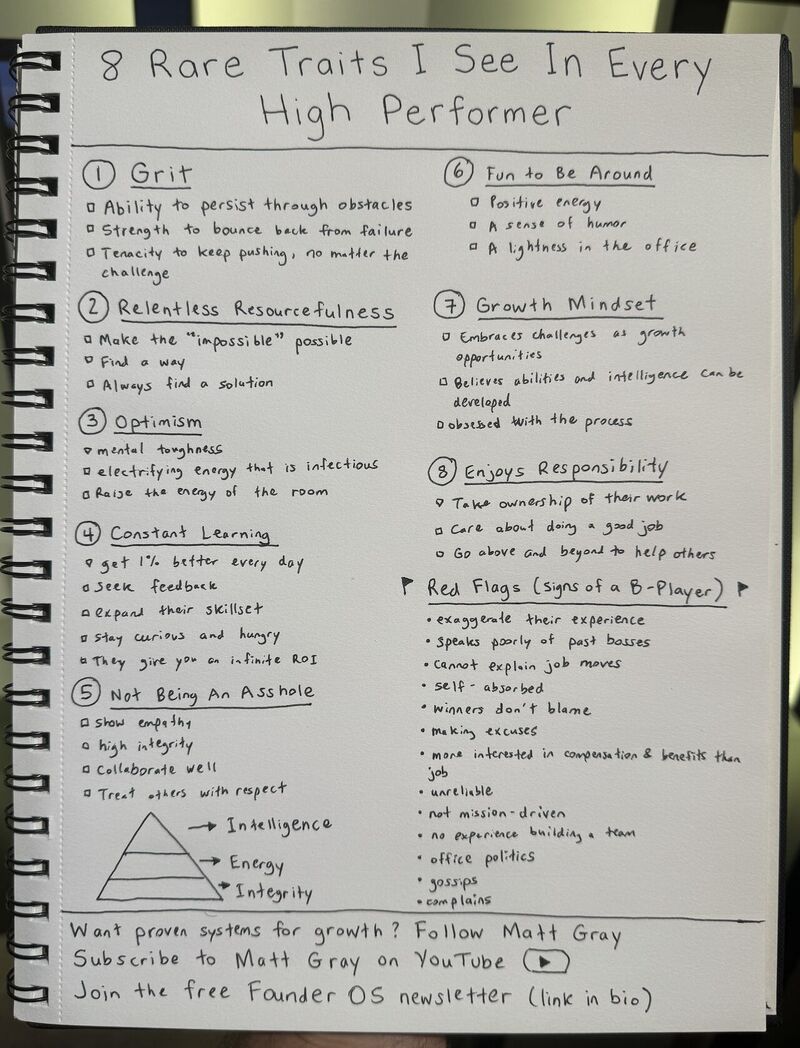 8 Rare Traits I See In Every
High Performer
① Grit
Ability to persist through obstacles
Strength to bounce back from failure
Tenacity to keep pushing, no matter the
challenge
② Relentless Resourcefulness
Make the "impossible" possible
Find a way
Always find a solution
③ Optimism
mental toughness
electrifying energy that is infectious
Raise the energy of the room
④ Constant Learning
get 1% better every day
Seek feedback
expand their skillset
stay curious and hungry
They give you an infinite ROI
⑤ Not Being An Asshole
Show empathy
high integrity
Collaborate well
Treat others with respect
Intelligence
Energy
Integrity
⑥ Fun to Be Around
Positive energy
A sense of humor
A lightness in the office
⑦ Growth Mindset
Embraces challenges as growth
opportunities
Believes abilities and intelligence can be
developed
obsessed with the process
⑧ Enjoys Responsibility
Take ownership of their work
Care about doing a good job
Go above and beyond to help others
Red Flags (signs of a B-Player)
• exaggerate their experience
• speaks poorly of past bosses
• cannot explain job moves
• self-absorbed
• winners don't blame
• making excuses
• more interested in compensation & benefits than
job
• unreliable
• not mission-driven
• no experience building a team
• office politics
• gossips
• complains
Want proven systems for growth? Follow Matt Gray
Subscribe to Matt Gray on YouTube
Join the free Founder OS newsletter (link in bio)